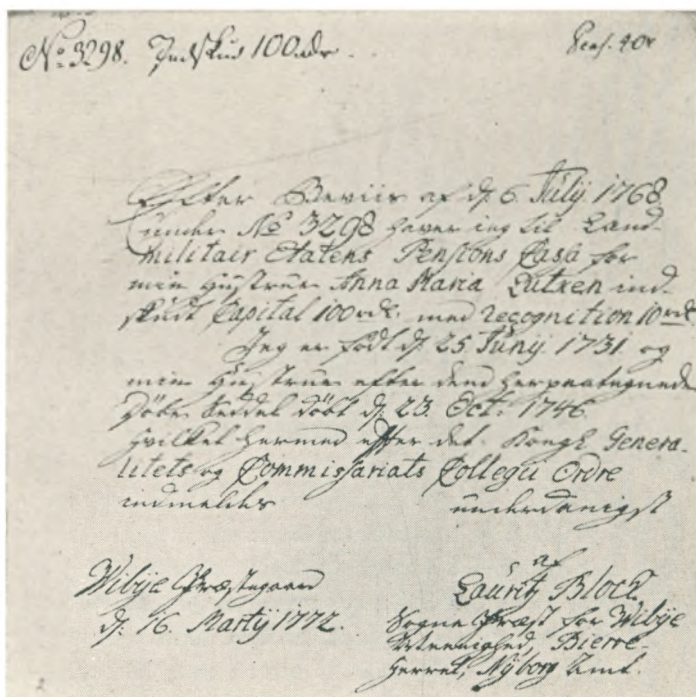 No 3298. Indskud 100 rdr. Pens. 40 r
Efter Beviis af d. 6. Julij 1768
under No 3298 haver jeg til Land-
militair Etatens Pensions Casa for
min Hustrue Anna Maria Lutken ind-
skudt Capital 100 rdr. med recognition 10 rdr
Jeg er född d. 25. Junij 1731. og
min Hustrue efter dend herpaategnede
Döbe Seddel döbt d. 23. Oct. 1746.
Hvilket hermed efter det Kongl. Genera-
litets og Commissariats Collegii Ordre
indmeldes underdanigst
af
Wibÿe Præstegaard Lauritz Bloch
d. 16. Martÿ 1772. Sogne Præst for Wibÿe
Meenighed, Bierre-
Herret, Nÿborg Amt.